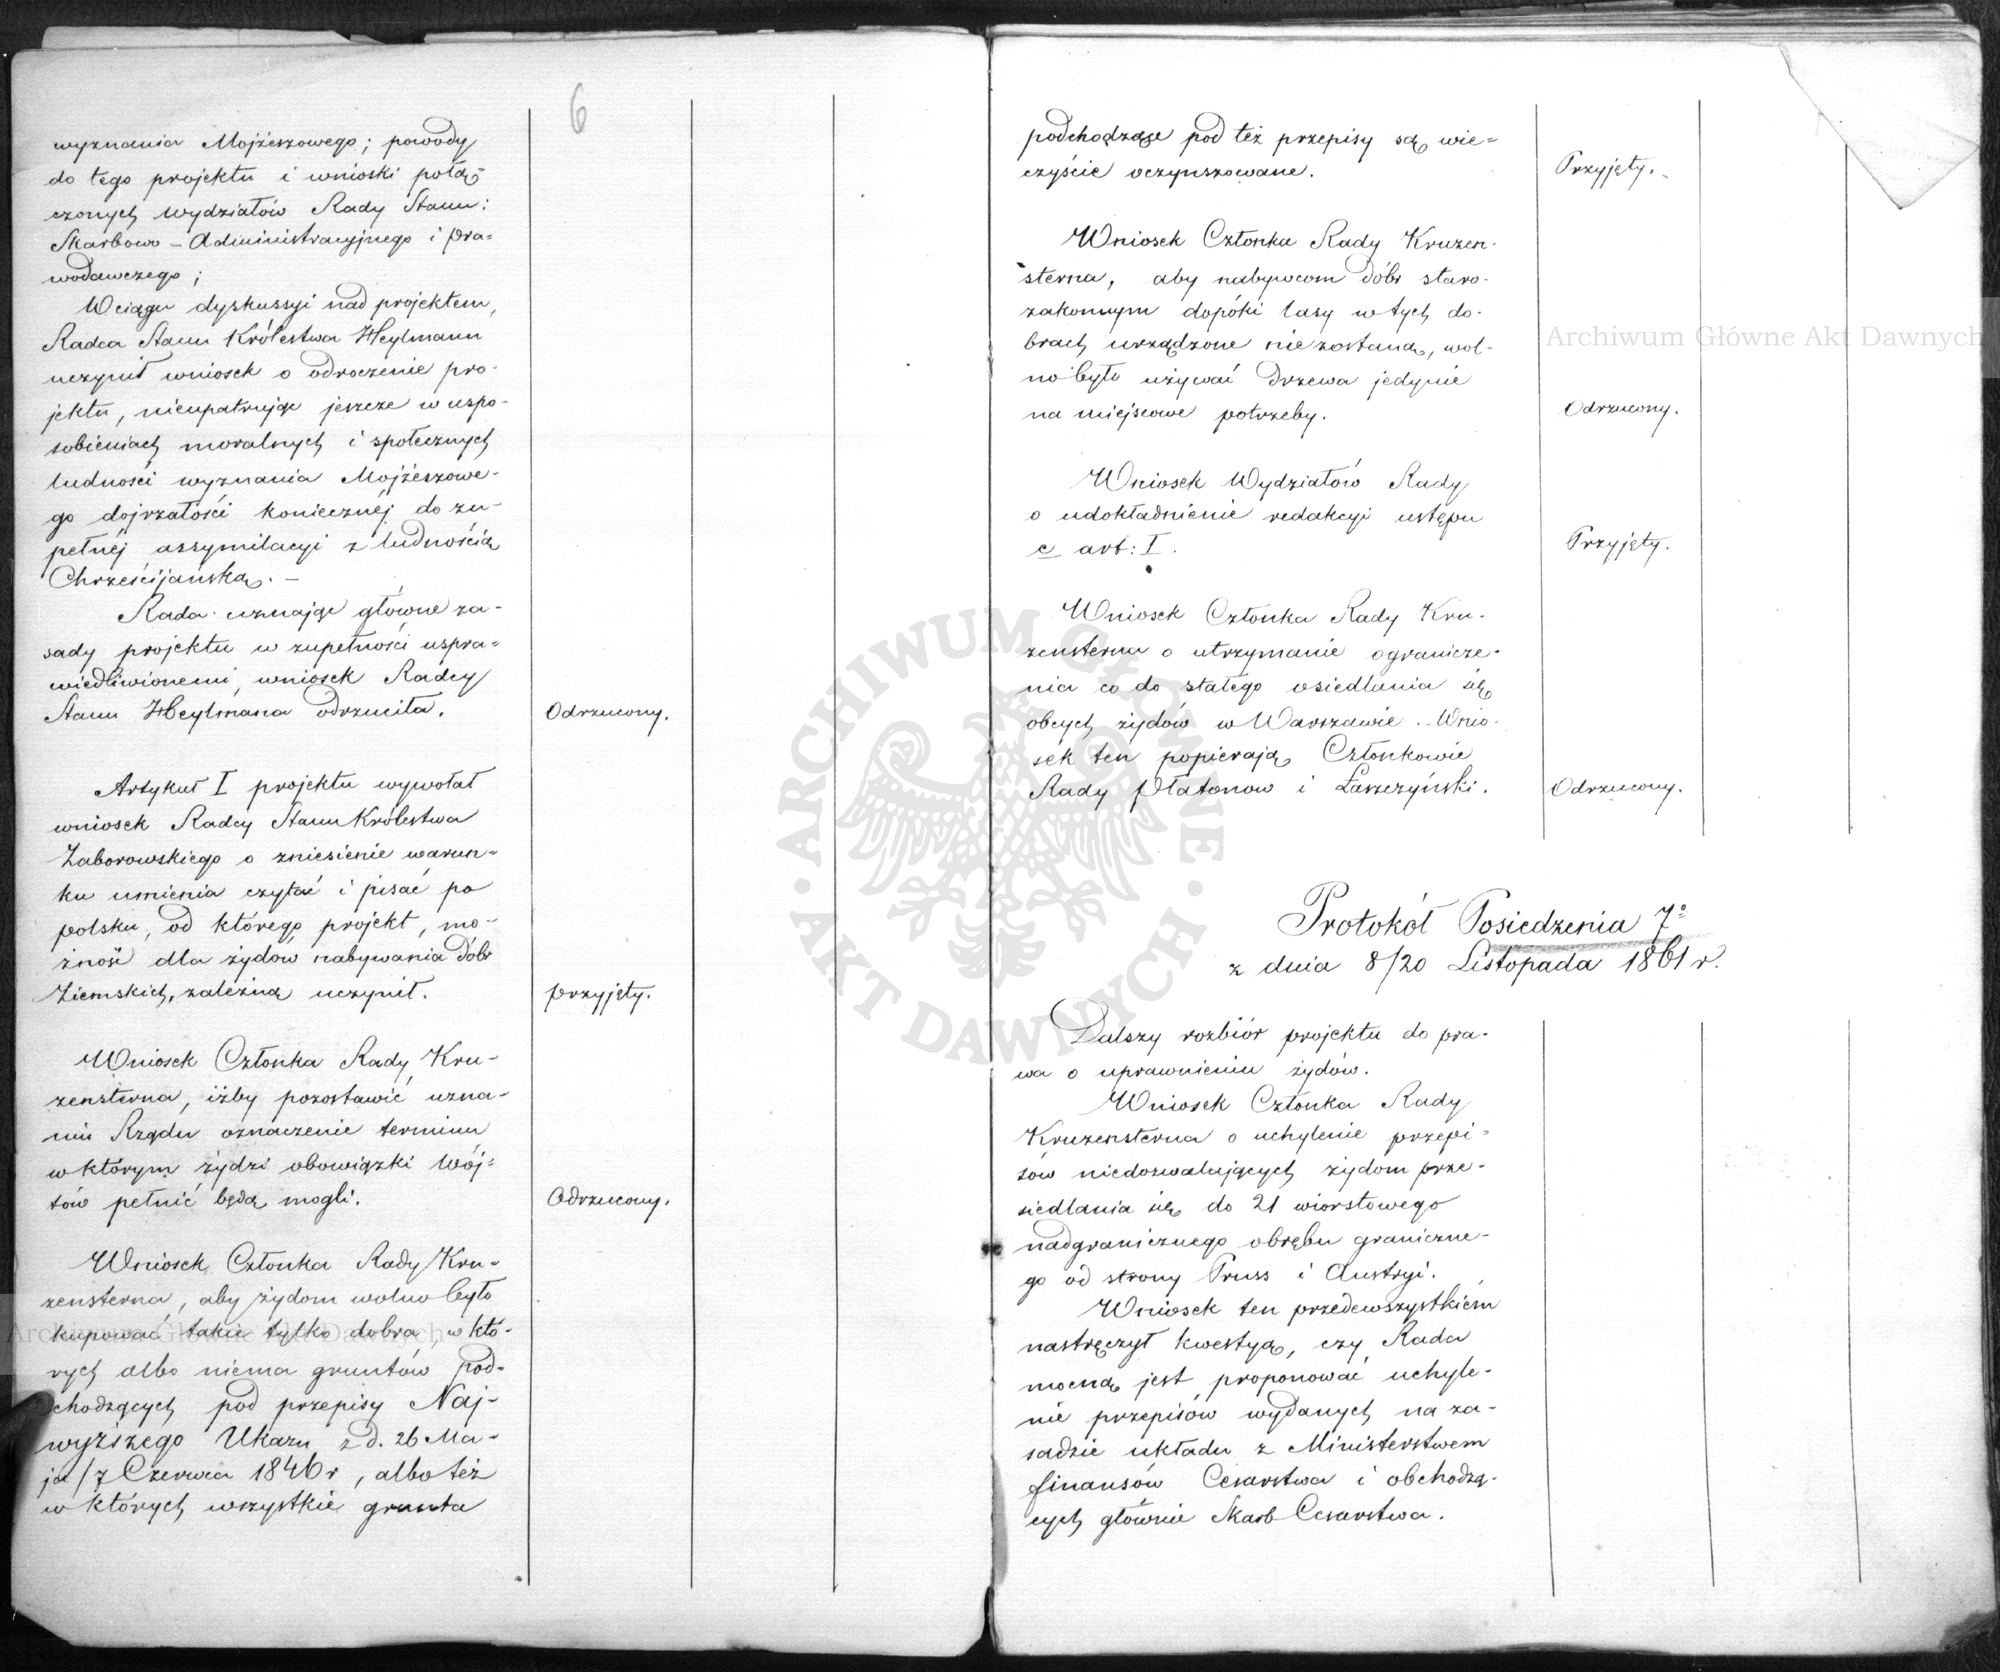 6
wyznania Mojżeszowego; powody
do tego projektu i wnioski połą-
czonych Wydziałów Rady Stanu:
Skarbowo-Administracyjnego i Pra-
wodawczego;
W ciągu dyskussyi nad projektem,
Radca Stanu Królestwa Heylmann
uczynił wniosek o odroczenie pro-
jektu, nieupatrując jeszcze w uspo-
sobieniach moralnych i społecznych
ludności wyznania Mojżeszowe-
go dojrzałości koniecznéj do zu-
pełnéj assymilacyi z ludnością
Chrześcijańską. —
Rada uznając główne za-
sady projektu w zupełności uspra-
wiedliwionemi, wniosek Radcy
Stanu Heylmana odrzuciła.
Odrzucony.
Artykuł I projektu wywołał
wniosek Radcy Stanu Królestwa
Zaborowskiego o zniesienie warun-
ku umienia czytać i pisać po
polsku, od którego projekt, mo-
żność dla żydów nabywania dóbr
Ziemskich, zależną uczynił.
Przyjęty.
Wniosek Członka Rady Kru-
zensterna, iżby pozostawić uzna-
niu Rządu oznaczenie terminu
w którym żydzi obowiązki Wój-
tów pełnić będą mogli.
Odrzucony.
Wniosek Członka Rady Kru-
zensterna, aby żydom wolno było
kupować takie tylko dobra, w któ-
rych albo niema gruntów pod-
chodzących pod przepisy Naj-
wyższego Ukazu z d. 26 Ma-
ja/7 Czerwca 1846 r, albo też
w których wszystkie grunta
podchodzące pod też przepisy są wie-
czyście oczynszowane.
Przyjęty.
Wniosek Członka Rady Kruzen-
sterna, aby nabywcom dóbr staro-
zakonnym dopóki lasy w tych do-
brach urządzone nie zostaną, wol-
no było używać drzewa jedynie
na miejscowe potrzeby.
Odrzucony.
Wniosek Wydziałów Rady
o udokładnienie redakcyi ustępu
c art: I.
Przyjęty.
Wniosek Członka Rady Kru-
zensterna o utrzymanie ogranicze-
nia co do stałego osiedlania się
obcych żydów w Warszawie. Wnio-
sek ten popierają Członkowie
Rady Płatonow i Łaszczyński.
Odrzucony.
Protokół Posiedzenia 7º
z dnia 8/20 Listopada 1861 r.
Dalszy rozbiór projektu do pra-
wa o uprawnieniu żydów.
Wniosek Członka Rady
Kruzensterna o uchylenie przepi-
sów niedozwalających żydom prze-
siedlania się do 21 wiorstowego
nadgranicznego obrębu graniczne-
go od strony Pruss i Austryi.
Wniosek ten przedewszystkiém
nastręczył kwestyą, czy Rada
mocną jest proponować uchyle-
nie przepisów wydanych na za-
sadzie układu z Ministerstwem
finansów Cesarstwa i obchodzą-
cych głównie Skarb Cesarstwa.
Archiwum Główne Akt Dawnych
Archiwum Główne Akt Dawnych
ARCHIWUM GŁÓWNE AKT DAWNYCH